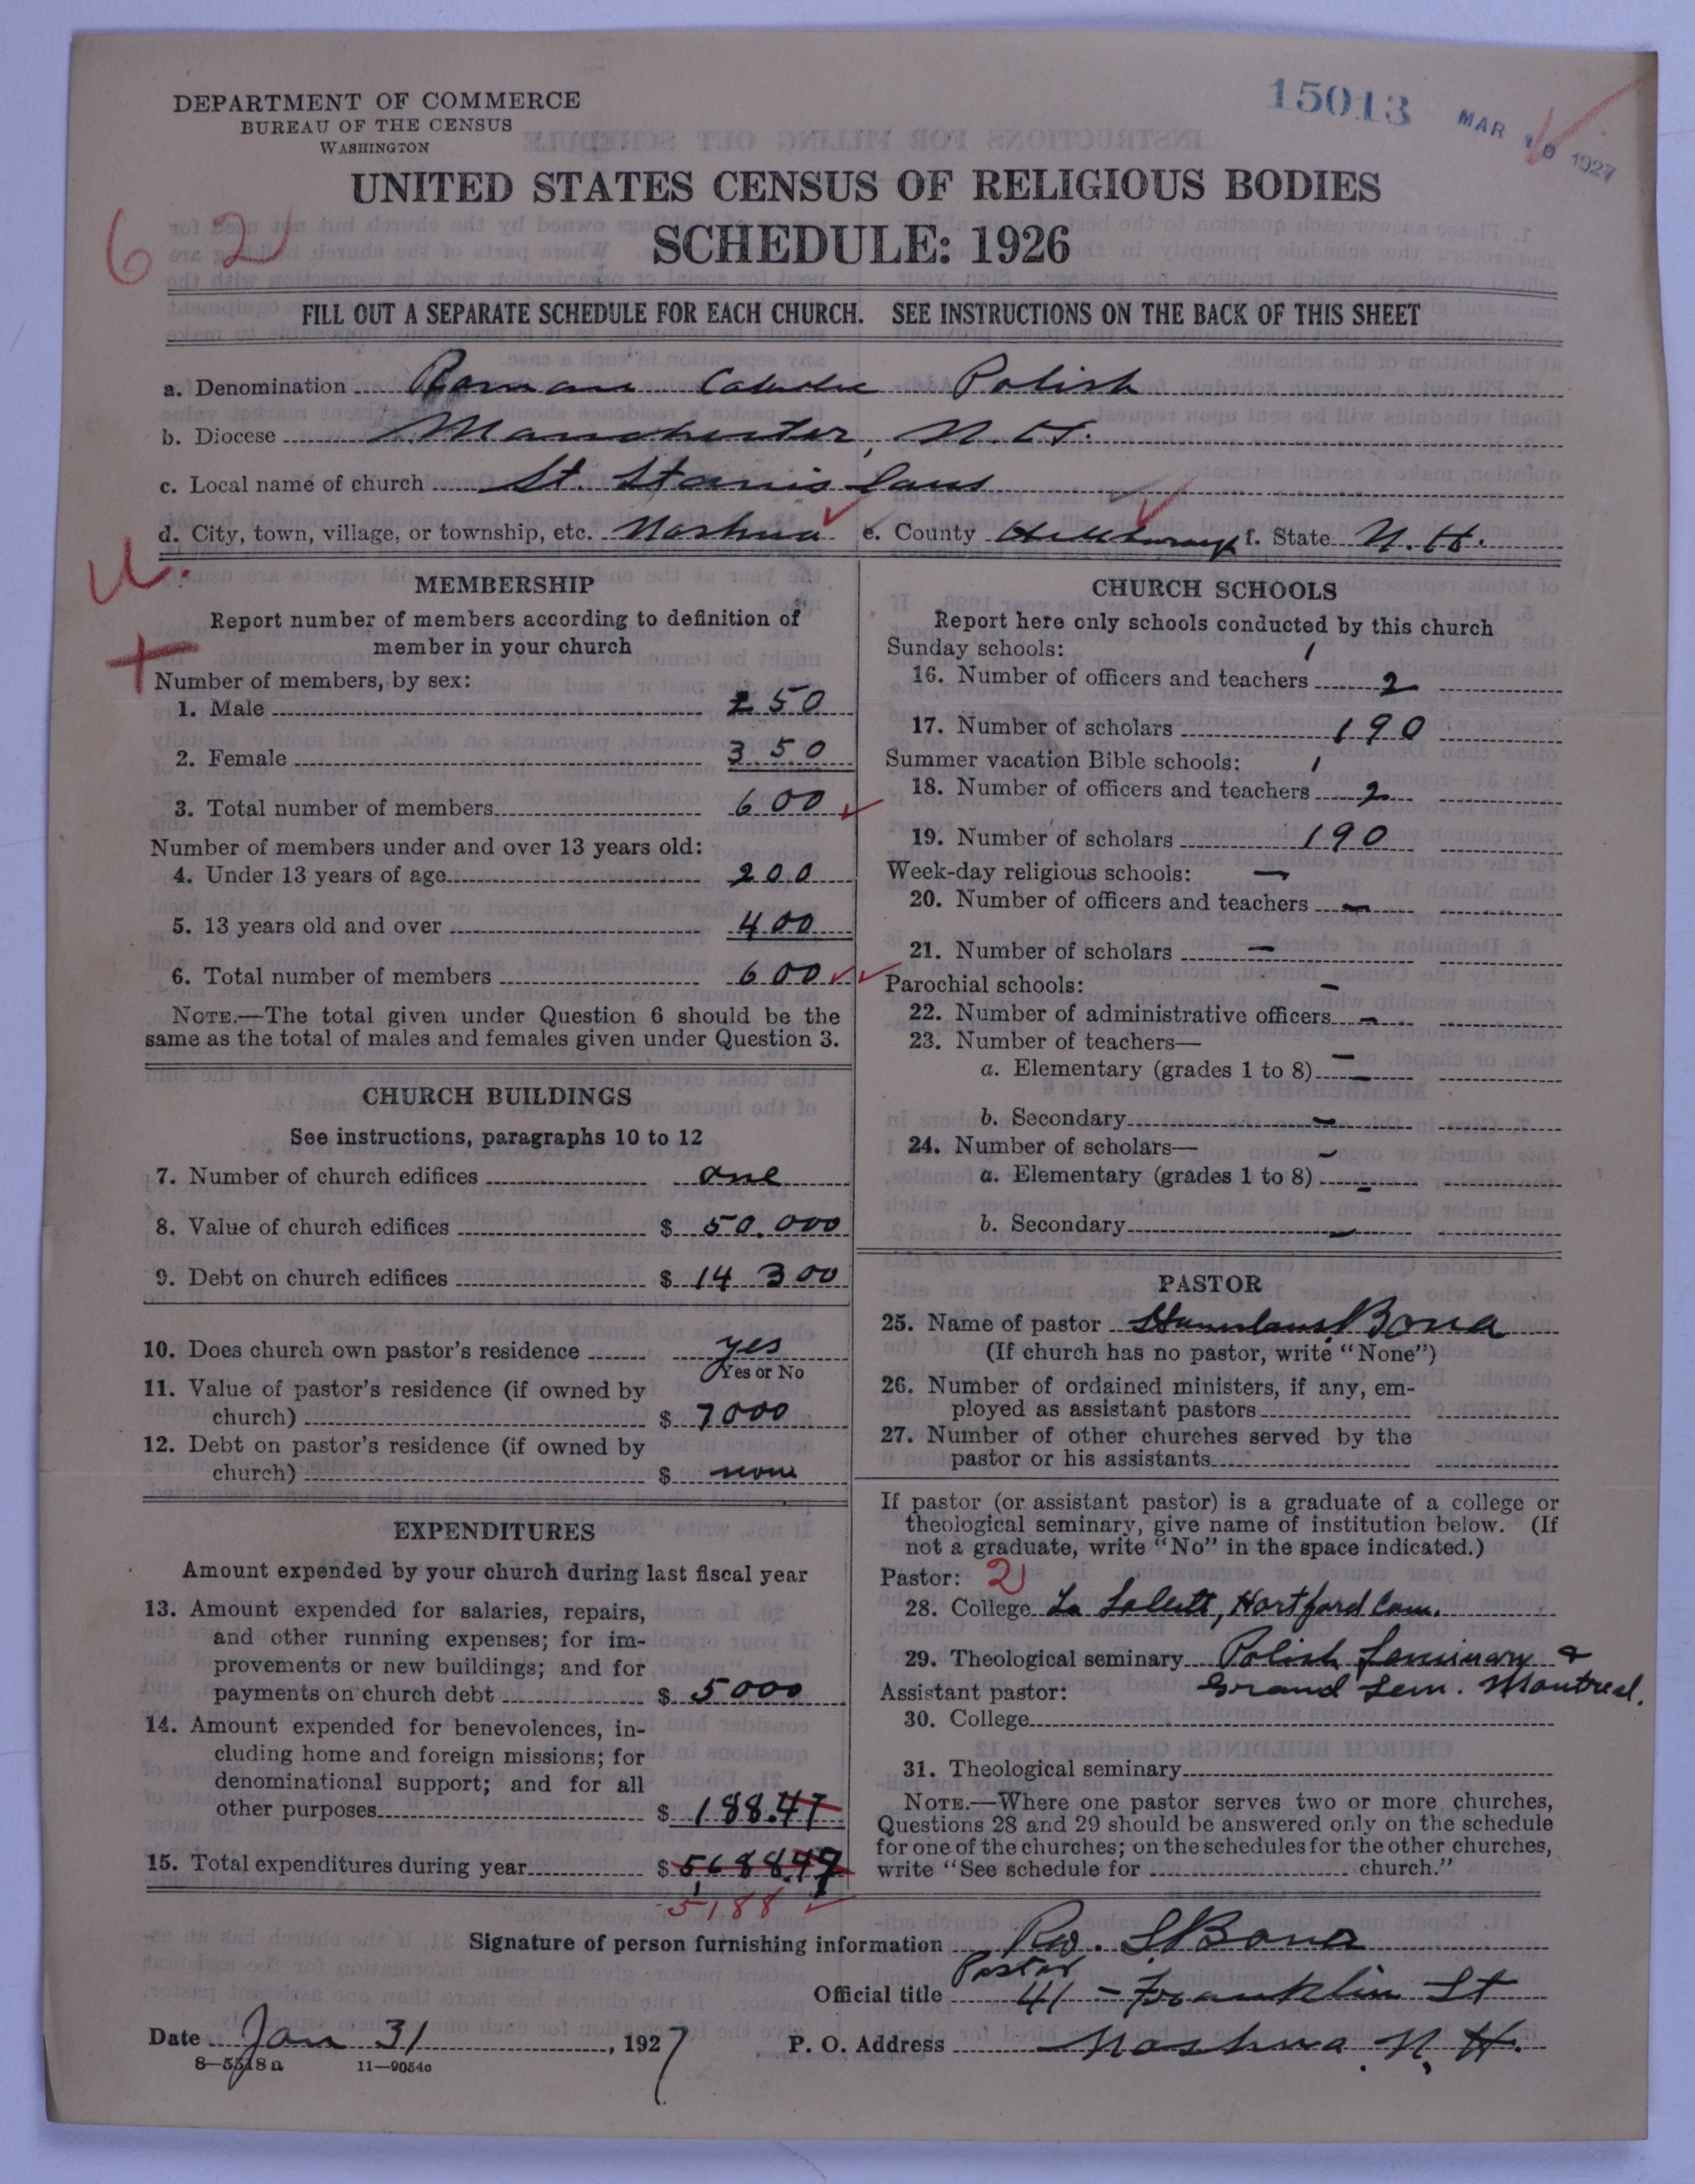 DEPARTMENT OF COMMERCE
BUREAU OF THE CENSUS
WASHINGTON
15013
MAR 10 1927
UNITED STATES CENSUS OF RELIGIOUS BODIES
6 2
SCHEDULE: 1926
FILL OUT A SEPARATE SCHEDULE FOR EACH CHURCH. SEE INSTRUCTIONS ON THE BACK OF THIS SHEET
a. Denomination Roman Catholic Polish
b. Diocese Manchester, N.H.
c. Local name of church St. Stanislaus
d. City, town, village, or township, etc. Nashua e. County Hillsborough f. State N.H.
MEMBERSHIP
Report number of members according to definition of
member in your church
Number of members, by sex:
1. Male 250
2. Female 350
3. Total number of members 600
Number of members under and over 13 years old:
4. Under 13 years of age 200
5. 13 years old and over 400
6. Total number of members 600
NOTE.—The total given under Question 6 should be the
same as the total of males and females given under Question 3.
CHURCH BUILDINGS
See instructions, paragraphs 10 to 12
7. Number of church edifices one
8. Value of church edifices $ 50.000
9. Debt on church edifices $ 14 300
10. Does church own pastor's residence yes
Yes or No
11. Value of pastor's residence (if owned by
church) $ 7000
12. Debt on pastor's residence (if owned by
church) $ none
EXPENDITURES
Amount expended by your church during last fiscal year
13. Amount expended for salaries, repairs,
and other running expenses; for im-
provements or new buildings; and for
payments on church debt $ 5000
14. Amount expended for benevolences, in-
cluding home and foreign missions; for
denominational support; and for all
other purposes $ 188.47
15. Total expenditures during year $ 5,188.47
5188
CHURCH SCHOOLS
Report here only schools conducted by this church
Sunday schools: 1
16. Number of officers and teachers 2
17. Number of scholars 190
Summer vacation Bible schools: 1
18. Number of officers and teachers 2
19. Number of scholars 190
Week-day religious schools: —
20. Number of officers and teachers —
21. Number of scholars —
Parochial schools: —
22. Number of administrative officers —
23. Number of teachers—
a. Elementary (grades 1 to 8) —
b. Secondary —
24. Number of scholars— —
a. Elementary (grades 1 to 8) —
b. Secondary —
PASTOR
25. Name of pastor Stanislaus Bona
(If church has no pastor, write "None")
26. Number of ordained ministers, if any, em-
ployed as assistant pastors
27. Number of other churches served by the
pastor or his assistants
If pastor (or assistant pastor) is a graduate of a college or
theological seminary, give name of institution below. (If
not a graduate, write "No" in the space indicated.)
Pastor: 2
28. College La Salette, Hartford Conn.
29. Theological seminary Polish Seminary &
Grand Sem. Montreal.
Assistant pastor:
30. College
31. Theological seminary
NOTE.—Where one pastor serves two or more churches,
Questions 28 and 29 should be answered only on the schedule
for one of the churches; on the schedules for the other churches,
write "See schedule for church."
Signature of person furnishing information Rev. S Bona
Pastor
Official title 41 - Franklin St
Date Jan 31, 1927 P. O. Address Nashua, N.H.
8—5518a 11—9054c